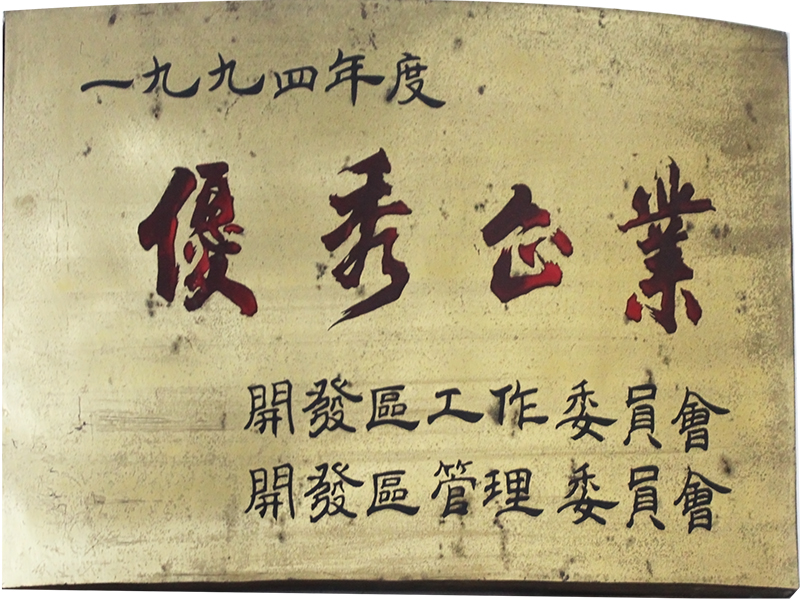 一九九四年度
優秀企業
開發區工作委員會
開發區管理委員會